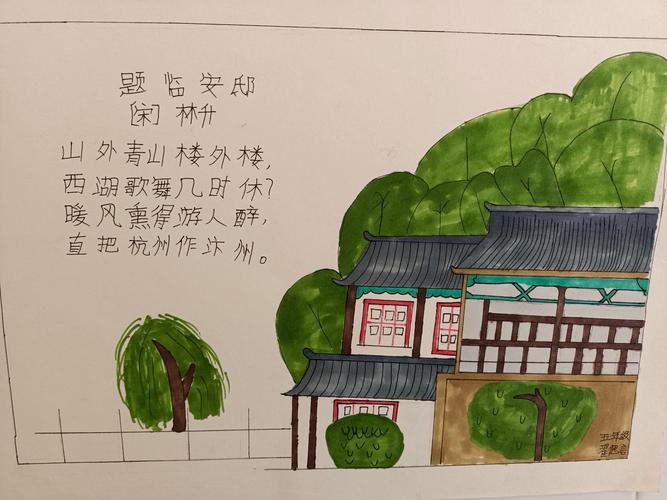 题临安邸
[宋] 林升
山外青山楼外楼,
西湖歌舞几时休?
暖风熏得游人醉,
直把杭州作汴州。
五年级